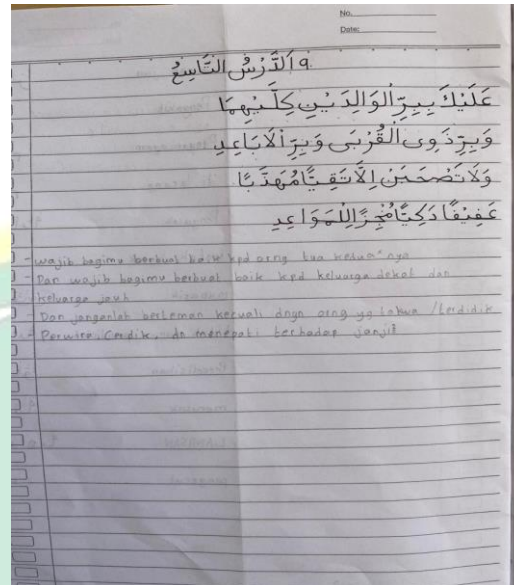 No.
Date:
٩ اَلدَّرْسُ التَّاسِعُ
عَلَيْكَ بِبِرِّ الْوَالِدَيْنِ كِلَيْهِمَا
وَبِرِّ ذَوِى الْقُرْبَى وَبِرِّ الْاَبَاعِدِ
وَلَا تَصْحَبَنْ اِلَّا تَقِيًّا مُهَذَّبًا
عَفِيْفًا ذَكِيًّا مُنْجِزًا لِلْمَوَاعِدِ
- Wajib bagimu berbuat baik kpd orng tua kedua" nya
- Dan wajib bagimu berbuat baik kpd keluarga dekat dan
keluarga jauh
- Dan janganlah berteman kecuali dngn orng yg takwa /terdidik
- Perwira, Cerdik, dn menepati terhadap janji²